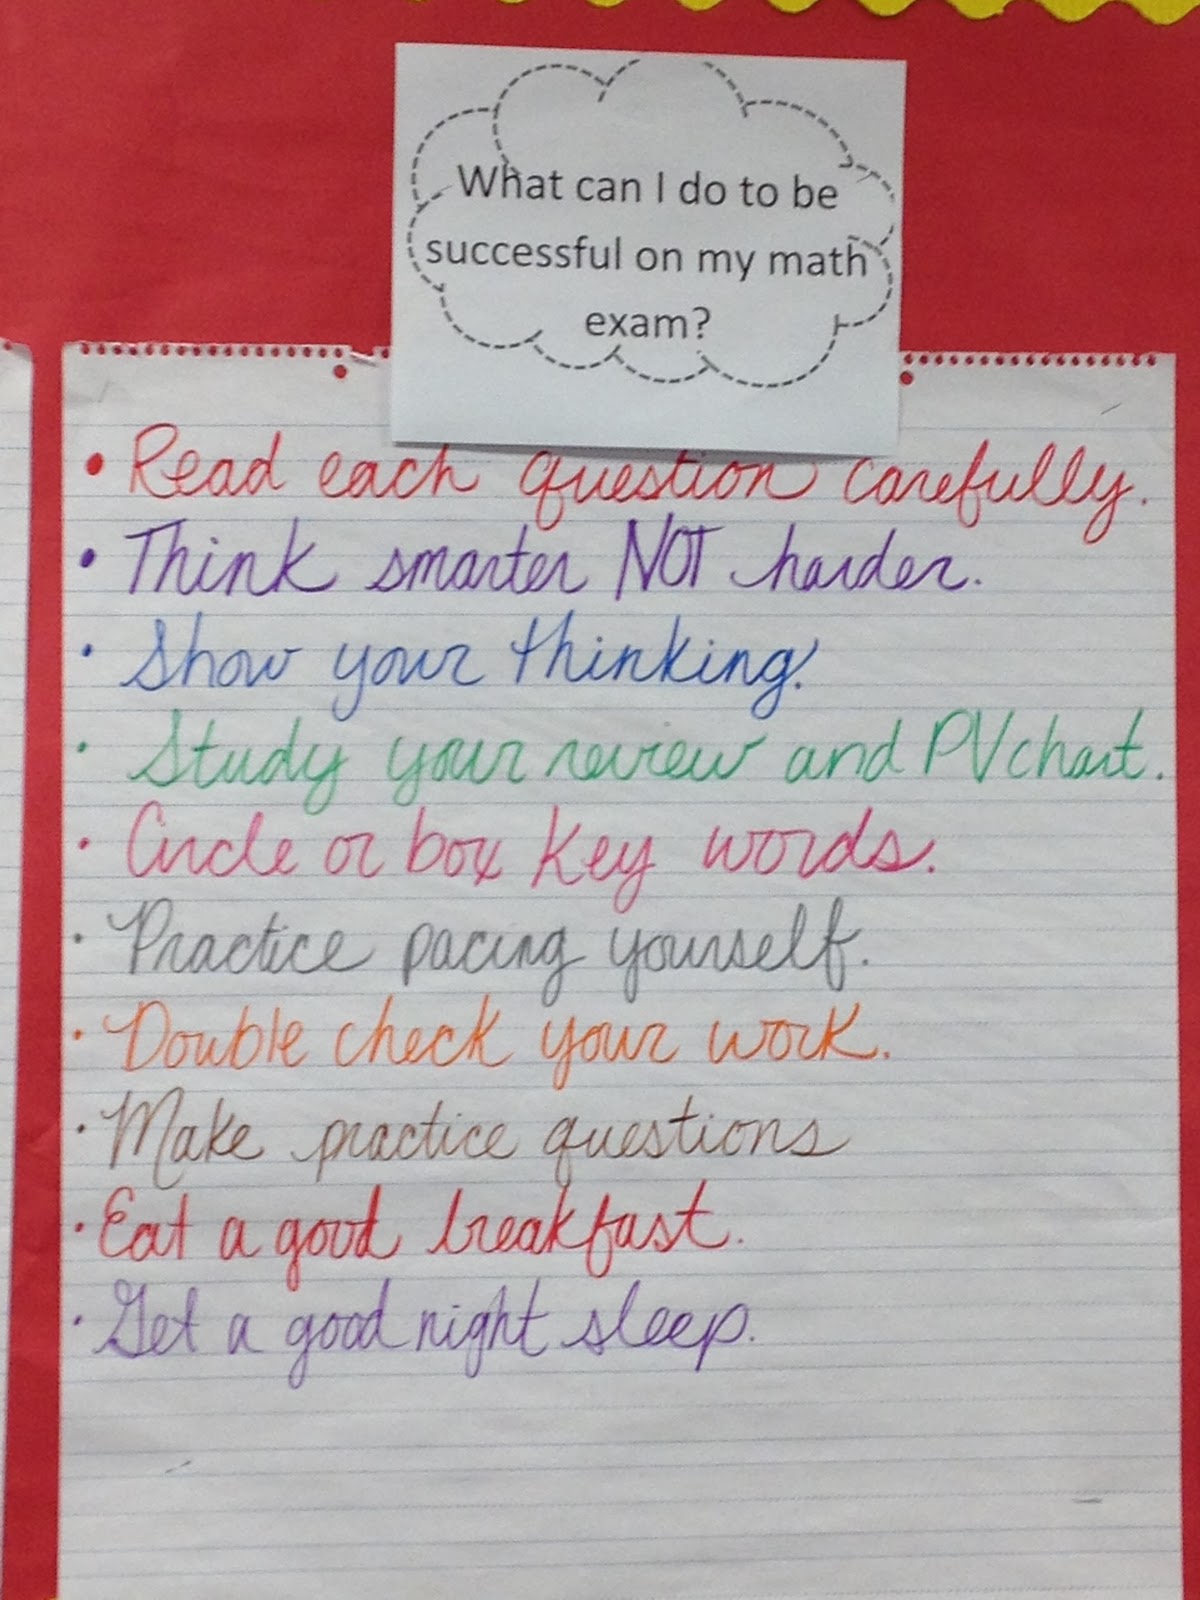 What can I do to be
successful on my math
exam?
• Read each question carefully.
• Think smarter NOT harder.
• Show your thinking.
• Study your review and PV chart.
• Circle or box key words.
• Practice pacing yourself.
• Double check your work.
• Make practice questions
• Eat a good breakfast.
• Get a good night sleep.